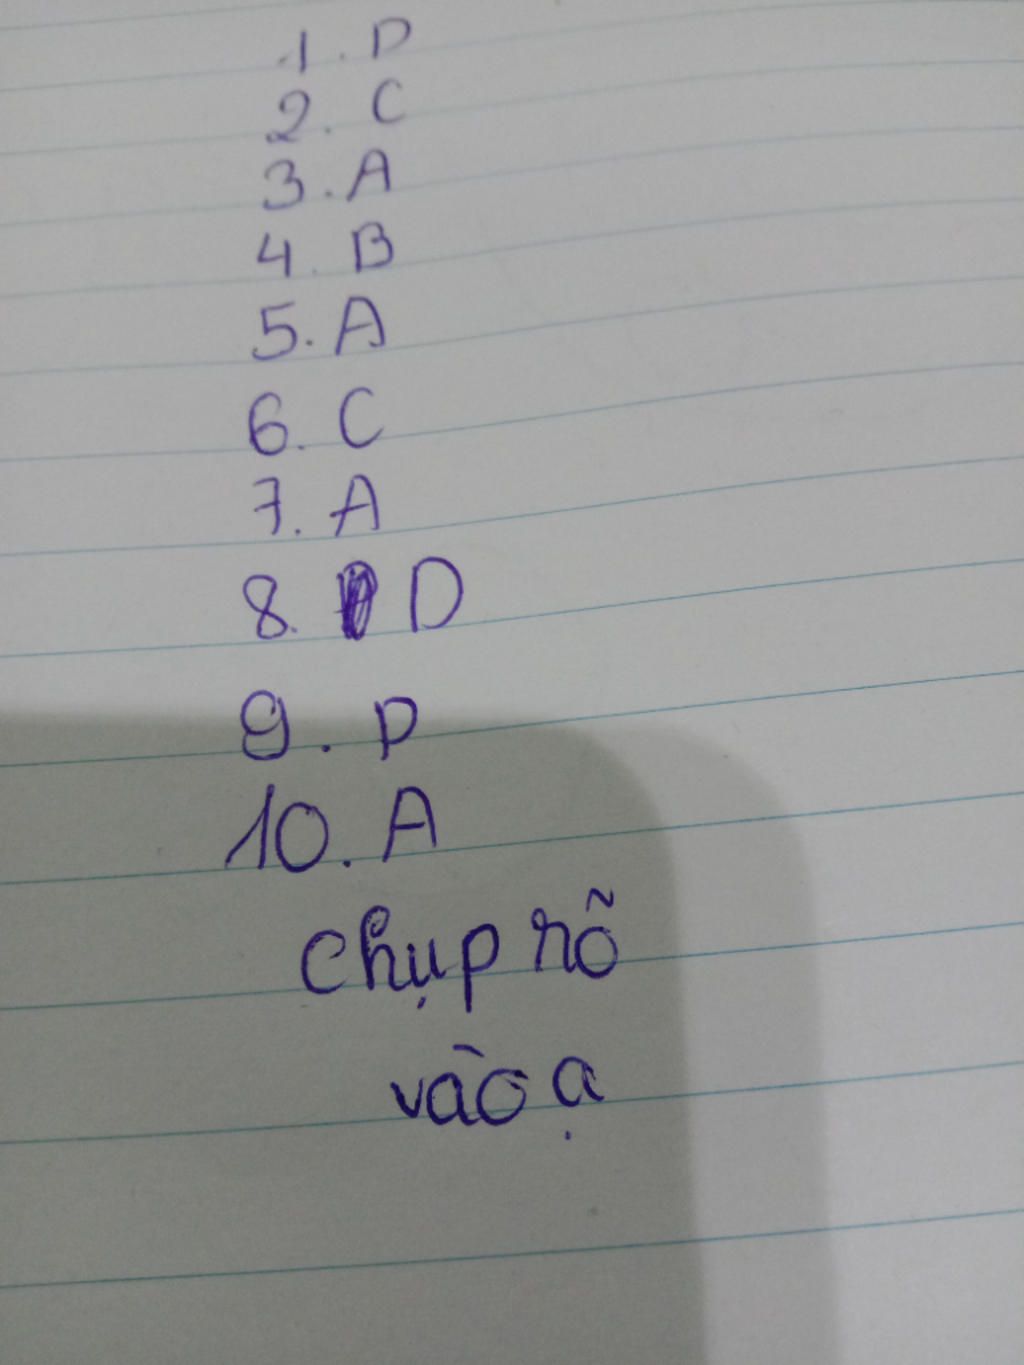 1. D
2. C
3. A
4. B
5. A
6. C
7. A
8. D
9. D
10. A
Chụp rõ
vào ạ